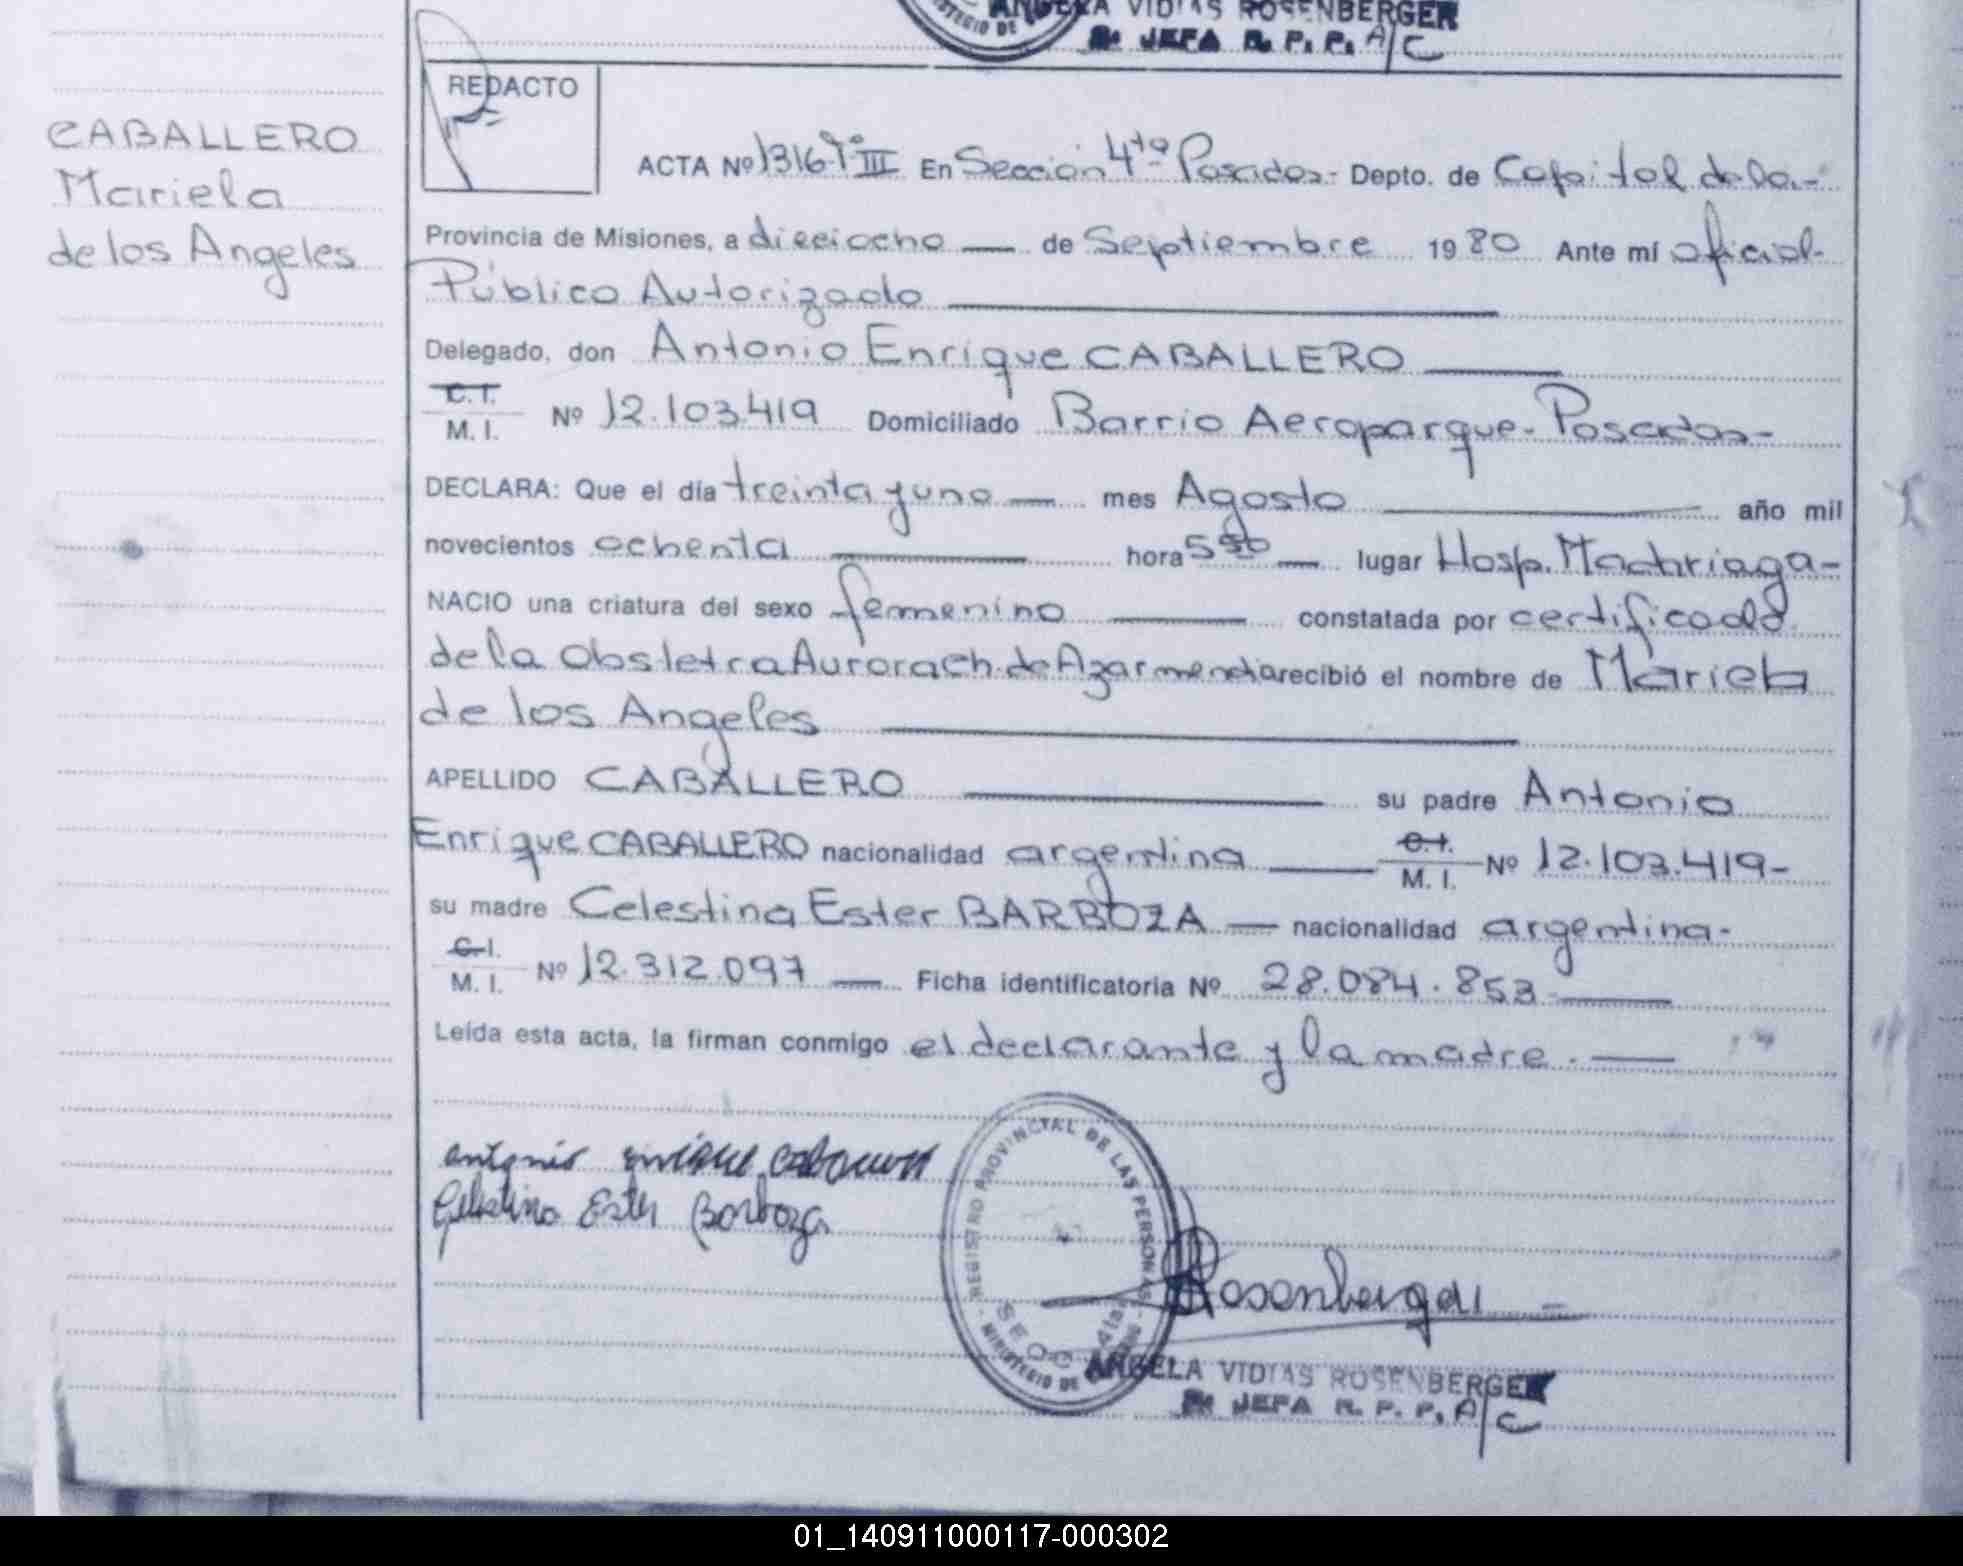 ANGELA VIDIAS ROSENBERGER
JEFA R. P. P. A/C
MINISTERIO DE
REDACTO
CABALLERO
Mariela
de los Angeles
ACTA Nº 1316 Tº III En Sección 4ta Posadas - Depto. de Capital de la -
Provincia de Misiones, a dieciocho — de Septiembre 1980 Ante mí oficial
Público Autorizado
Delegado, don Antonio Enrique CABALLERO
C.I.
M. I. Nº 12.103.419 Domiciliado Barrio Aeroparque - Posadas -
DECLARA: Que el día treinta y uno — mes Agosto — año mil
novecientos ochenta — hora 5 — lugar Hosp. Madariaga -
NACIO una criatura del sexo femenino — constatada por certificado
de la Obstetra Aurora ch. de Azarmendia recibió el nombre de Mariela
de los Angeles
APELLIDO CABALLERO — su padre Antonio
Enrique CABALLERO nacionalidad argentina — C.I. M. I. Nº 12.103.419 -
su madre Celestina Ester BARBOZA — nacionalidad argentina -
C.I.
M. I. Nº 12.312.097 — Ficha identificatoria Nº 28.084.853 —
Leída esta acta, la firman conmigo el declarante y la madre. —
antonio enrique caballero
Celestina Ester Barboza
REGISTRO PROVINCIAL DE LAS PERSONAS
MINISTERIO DE
SECC 4ta
Rosenberger
ANGELA VIDIAS ROSENBERGER
JEFA R. P. P. A/C
01_140911000117-000302